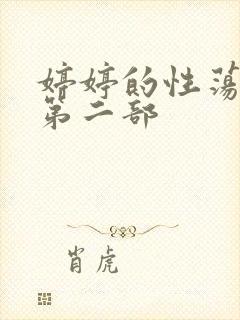 婷婷的性荡
第二部
肖虎